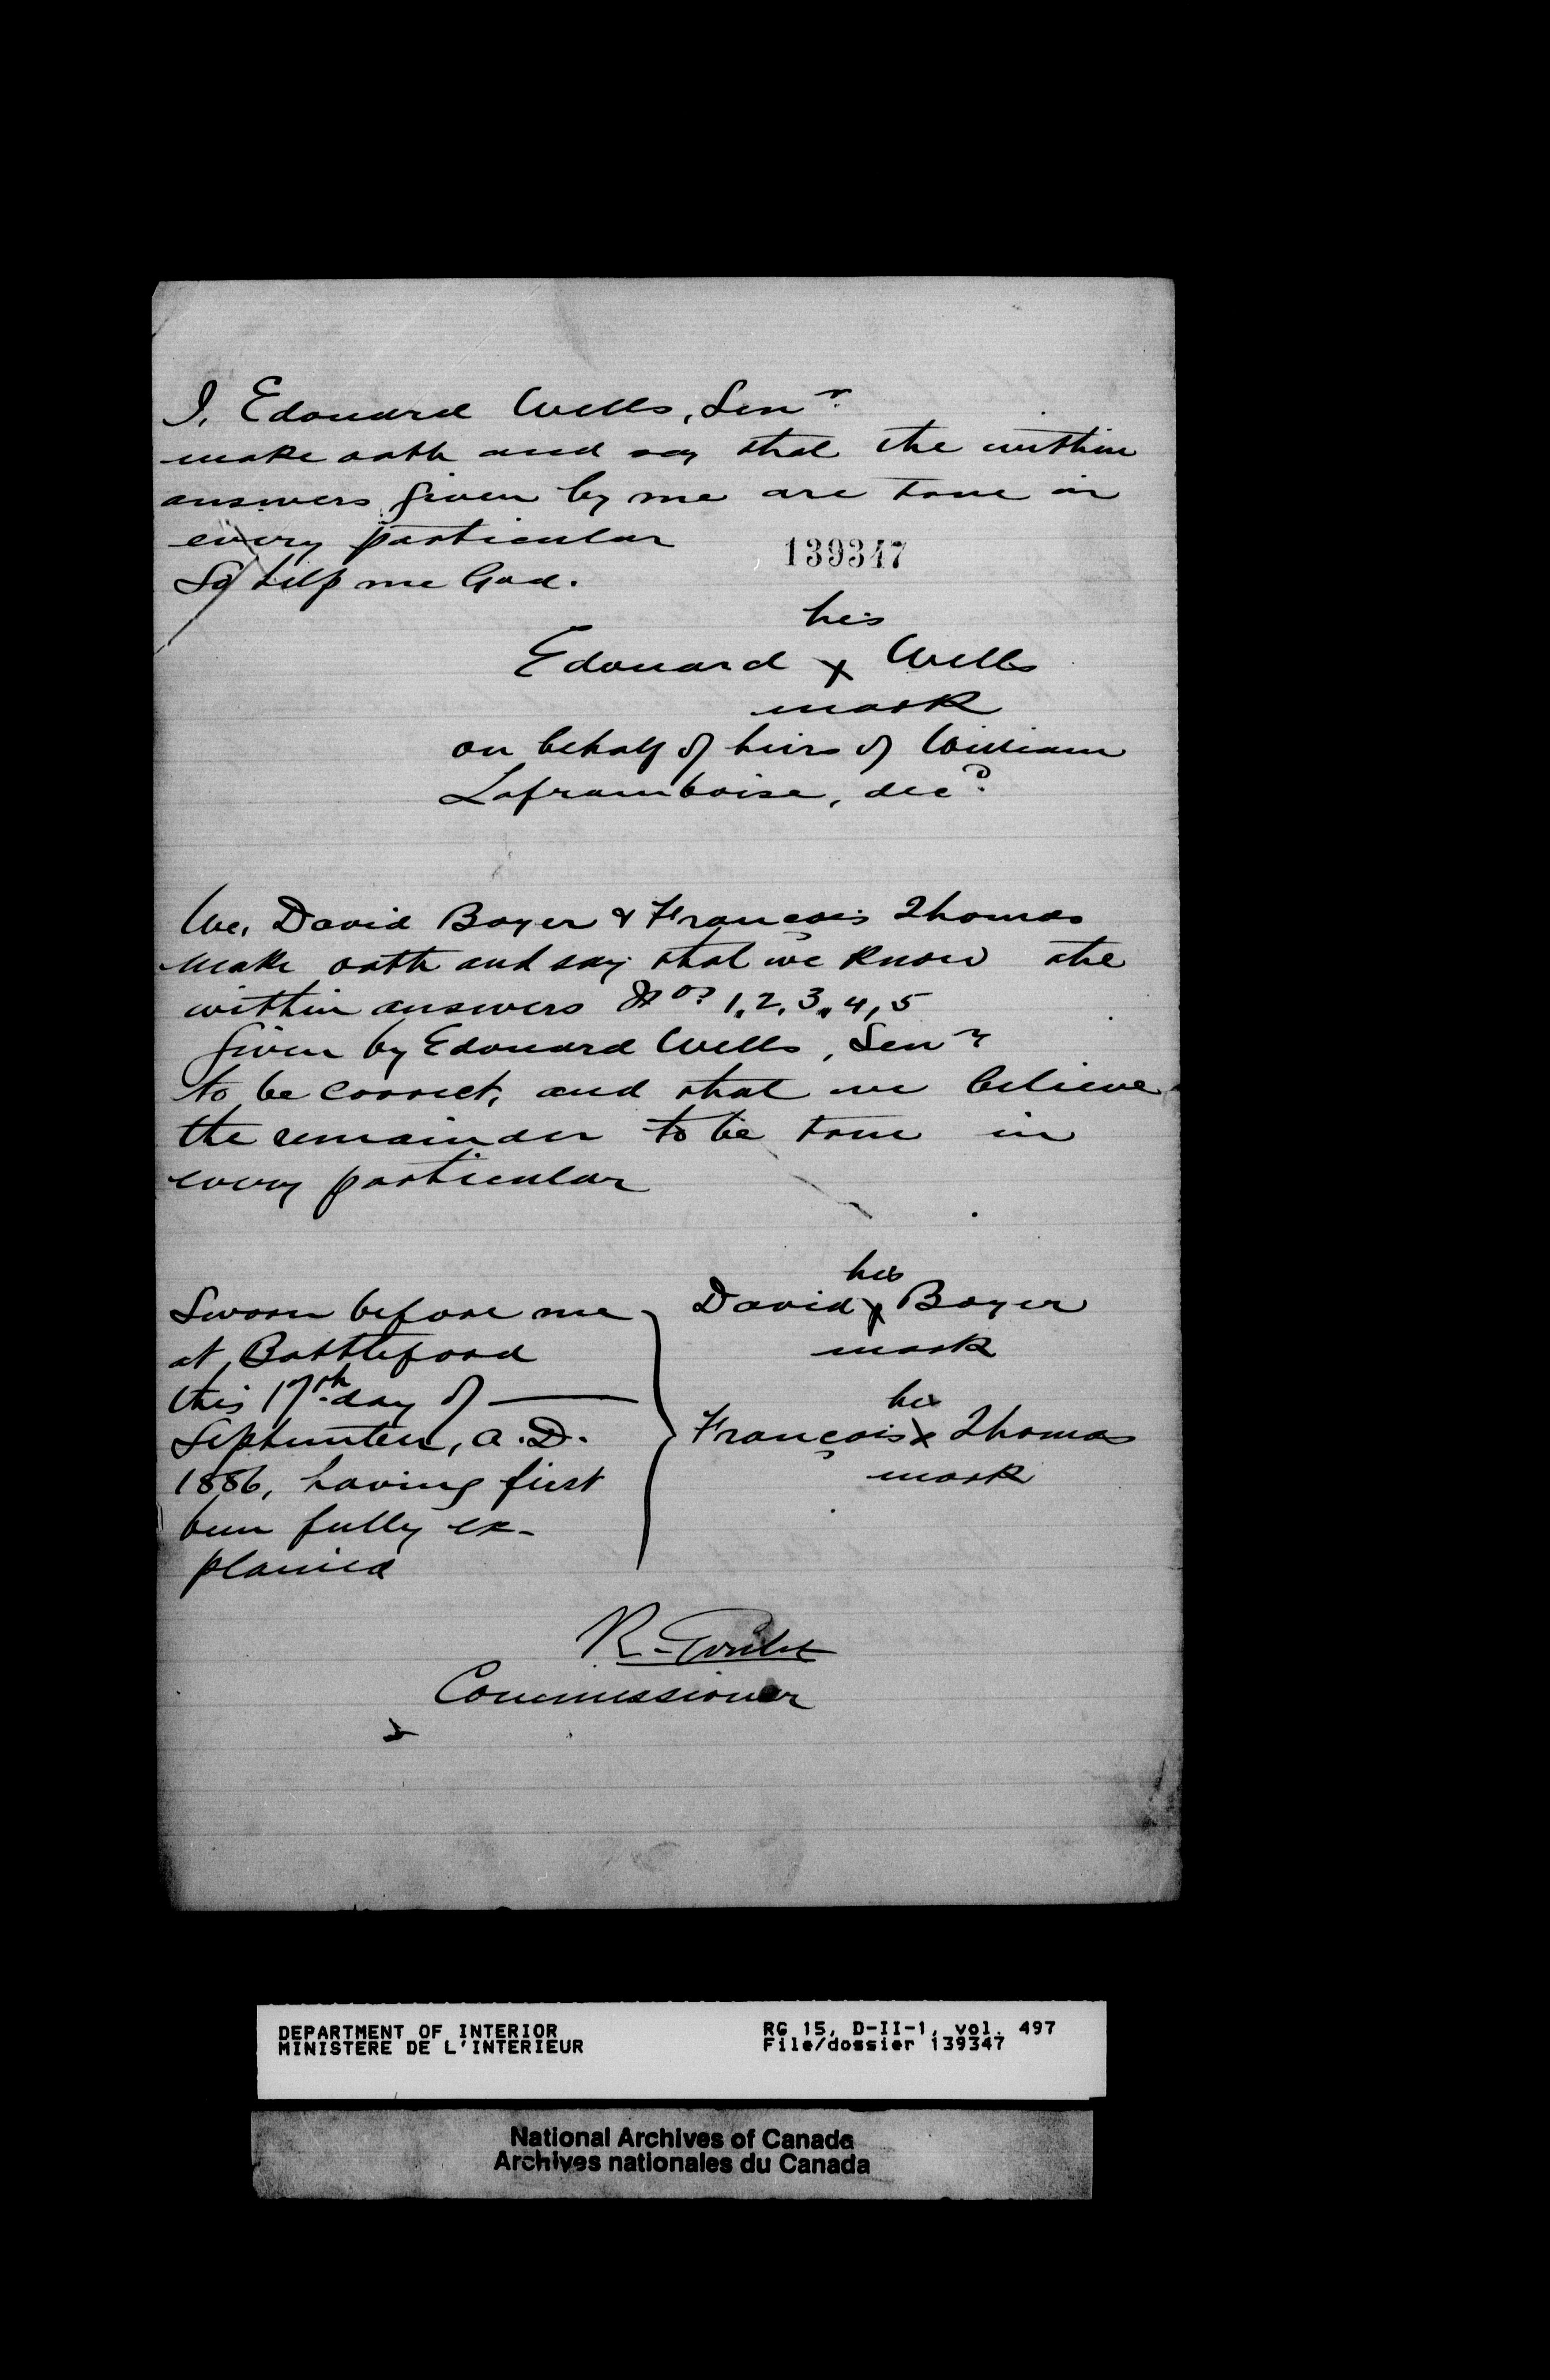 I, Edouard Wells, Senr.
make oath and say that the within
answers given by me are true in
every particular
139347
So help me God.
his
Edouard x Wells
mark
on behalf of heirs of William
Laframboise, decd.
We, David Boyer & François Thomas
make oath and say that we know the
within answers Nos. 1, 2, 3, 4, 5
given by Edouard Wells, Senr.
to be correct, and that we believe
the remainder to be true in
every particular
his
David x Boyer
mark
his
François x Thomas
mark
Sworn before me
at Battleford
this 17th. day of —
September, A.D.
1886, having first
been fully ex-
plained
R. Goulet
Commissioner
DEPARTMENT OF INTERIOR
MINISTERE DE L'INTERIEUR
RG 15, D-II-1, vol. 497
File/dossier 139347
National Archives of Canada
Archives nationales du Canada